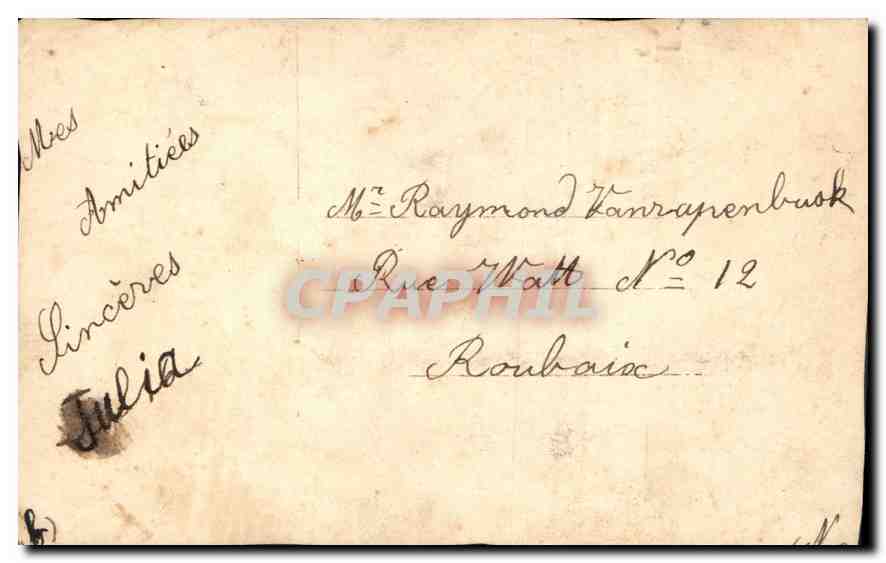 Mes
Amitiées
Sincères
Julia
Mr Raymond Vanrapenbusk
Rue Watt No 12
Roubaix
CPAPHIL